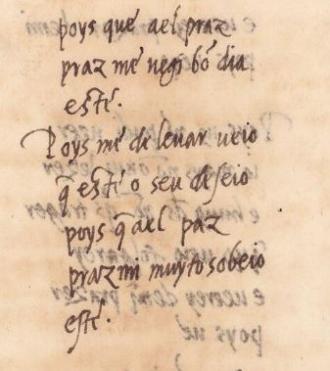 poys que ael praz
praz me negi bõ dia
este.
Poys me de leuar ueio
q̃ este o seu deseio
poys q̃ ael paz
praz mi muyto sobeio
este.